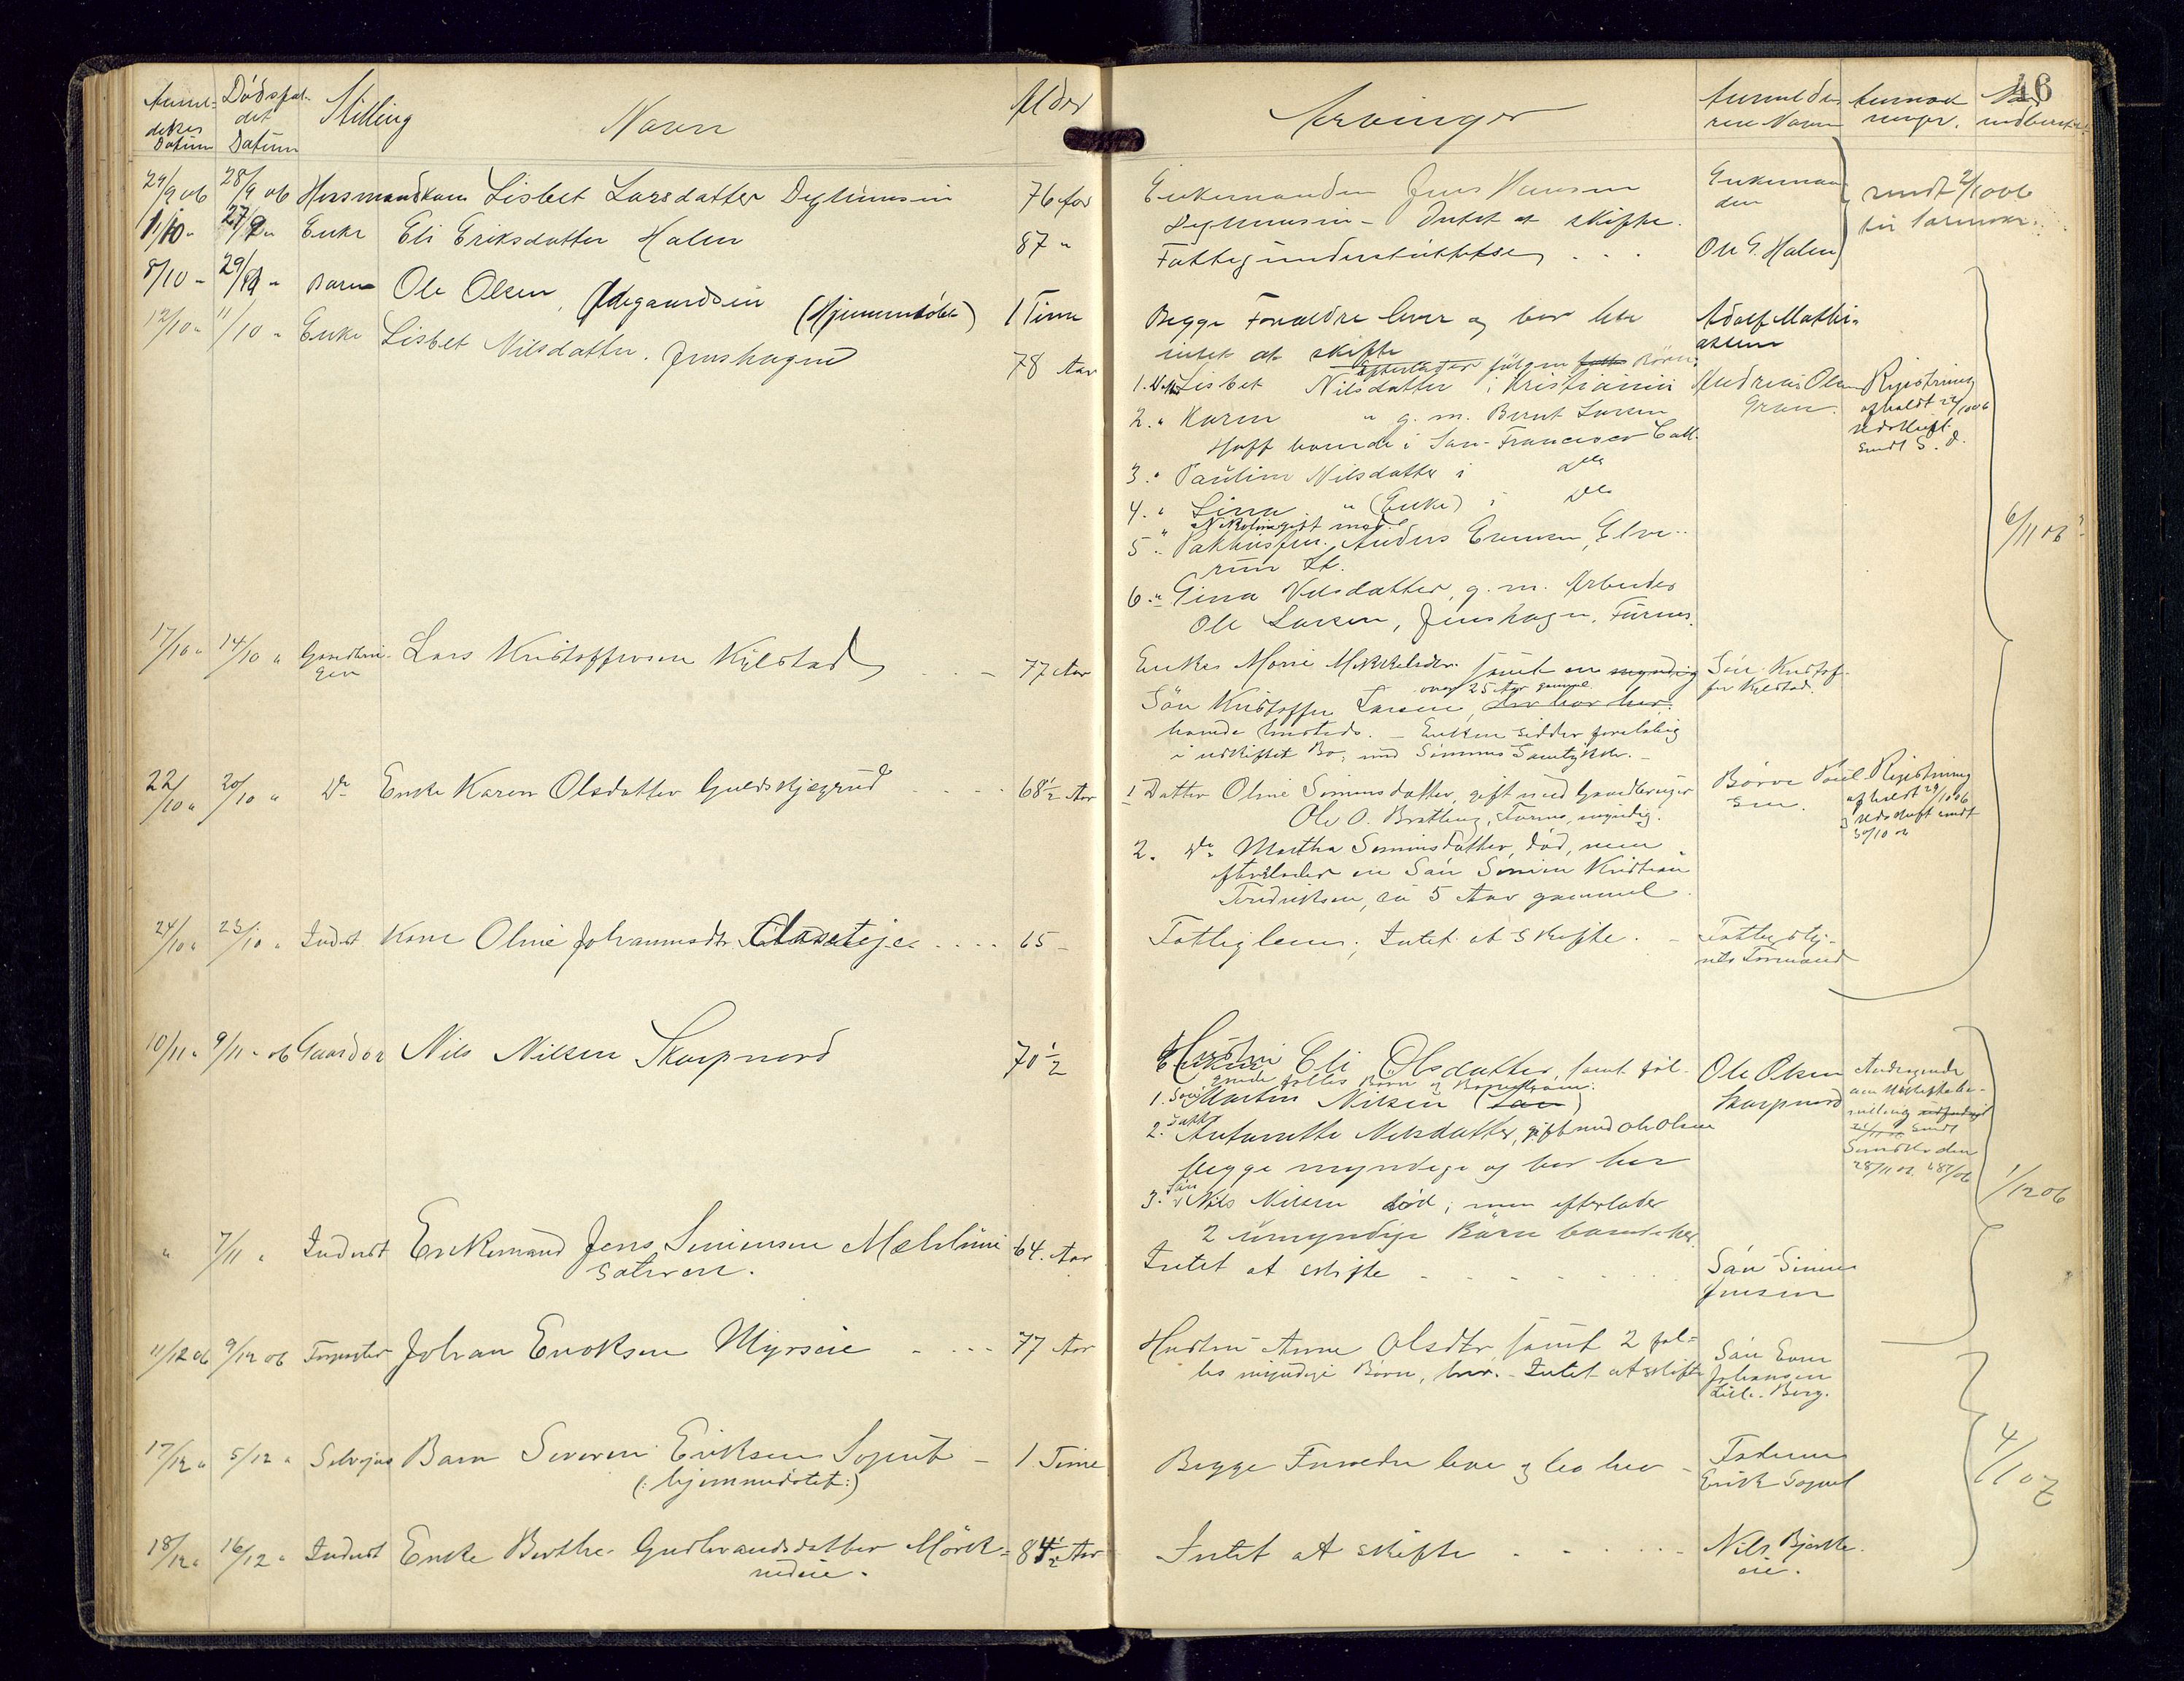 46
Anmel- Dødsfal- Stilling Navn Alder
delses det
Datum Datum
29/9 06 28/9 06 Husmandskone Lisbet Larsdatter Deglumseie 76 Aar
1/10 " 27/9 " Enke Eli Eriksdatter Holen 87 "
8/10 " 29/9 " Barn Ole Olsen, Ødegaardseie (Hjemmedøbt) 1 Time
12/10 " 11/10 " Enke Lisbet Nilsdatter. Jenshagen 78 Aar
17/10 " 14/10 " Gaardbru-
ger Lars Kristoffersen Kylstad 77 Aar
22/10 " 20/10 " Do Enke Karen Olsdatter Guldskjægrud 68½ Aar
24/10 " 23/10 " Inderst Kone Oline Johannesdtr. 65 -
10/11 " 9/11 - 06 Gaardbr Nils Nilsen Skarpnord 70½
" 7/11 " Inderst Enkemand Jens Simensen Mælum 64. Aar
11/12 06 9/12 06 Forpagter Johan Enoksen Myrseie - - - - 77 Aar
17/12 " 5/12 " Selvejer Barn Severin Eriksen - 1 Time
(: hjemmedøbt :)
18/12 " 16/12 " Inderst Enke Berthe Gudbrandsdatter Mørk- 84½ Aar
Arvinger Anmelde-
rens Navn
Enkemanden Jens Hansen Enkeman-
den sendt 2/10 06
Deglumseie - Intet at skifte.
Fattigunderstøttelse . . . Ole G. Holen
Begge Forældre lever og bor her Adolf Mathi-
asen
intet at skifte
Efterlader følgende Børn:
1. Datter Lisbet Nilsdatter i Kristiania Andreas Olsen Registrering
2. " Karen " g. m. Bernt Larsen Gran. afholdt 22/10 06
Hoff boende i San-Francisco Call. Udskrift
sendt S. D.
3. " Pauline Nilsdatter i do
4. " Lina " (Enke) i do
Nikoline gift med
5. " Pakhusfm. Anders Evensen, Elve-
rum St.
6/11 06
6. " Gina Nilsdatter, g. m. Arbeider
Ole Larsen, Jenshagen, Furnes.
Enken Marie Mikkelsdtr. samt en myndig Søn Kristof-
fer Kylstad.
over 25 Aar gammel
Søn Kristoffer Larsen, der bor her.
boende Enken sidder foreløbig
i uskiftet Bo, med Sønnens Samtykke. -
1 Datter Oline Simensdatter, gift med Gaardbruger Børre Paul-
sen. Registrering
afholdt 29/10 06
Udskrift sendt
30/10 06
Ole O. Bratberg, Furnes, myndig.
2. Do Martha Simensdatter, død, men
efterlader en Søn Simen Kristian
Fredriksen, ca 5 Aar gammel.
Fattiglem; Intet at skifte. - Fattigsty-
rets Formand
Hustru
Enken Eli Olsdatter, samt føl- Ole Olsen
Skarpnord Andragende
gende fælles Børn og Barnebarn:
1. Søn Martin Nilsen (Søn)
2. Datt. Antonette Nilsdatter, gift med Ole Olsen
sendt
Sorenskr. den
28/11 06
begge myndige og bor her
3. Søn Nils Nilsen død; men efterlader
2 umyndige Børn boende her.
1/12 06
Intet at skifte - - - - Søn Simen
Jensen
Hustru Anne Olsdtr samt 2 fæl-
les myndige Børn, her. - Intet at skifte Søn Even
Johansen
Lille-Berg.
Begge Forældre lever og bor her - Faderen
Erik
4/1 07
Intet at skifte - - - - Nils Bjørke-
eie.